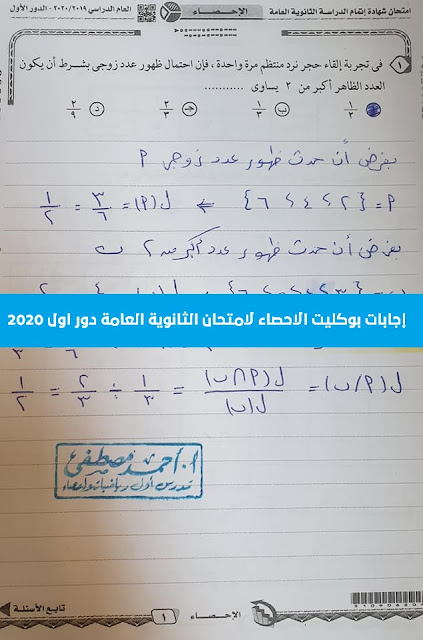 امتحان شهادة إتمام الدراسة الثانوية العامة
الإحصـــاء
العام الدراسي ٢٠٢٠/٢٠١٩ - الدور الأول
١ فى تجربة إلقاء حجر نرد منتظم مرة واحدة ، فإن احتمال ظهور عدد زوجى بشرط أن يكون
العدد الظاهر أكبر من ٢ يساوى ............
١/٢ ب ١/٣ جـ ٢/٣ د ٢/٩
بفرض أن حدث ظهور عدد زوجى P
P = {٢ ، ٤ ، ٦} ⇐ ل(P) = ٣/٦ = ١/٢
بفرض أن حدث ظهور عدد أكبر من ٢ ب
إجابات بوكليت الاحصاء لامتحان الثانوية العامة دور اول 2020
ل(P/ب) = ل(P∩ب)/ل(ب) = ١/٣ ÷ ٢/٣ = ١/٢
أ. أحمد مصطفى
مدرس أول رياضيات وإحصاء
تابع الأسئلة
الإحصـــاء
١